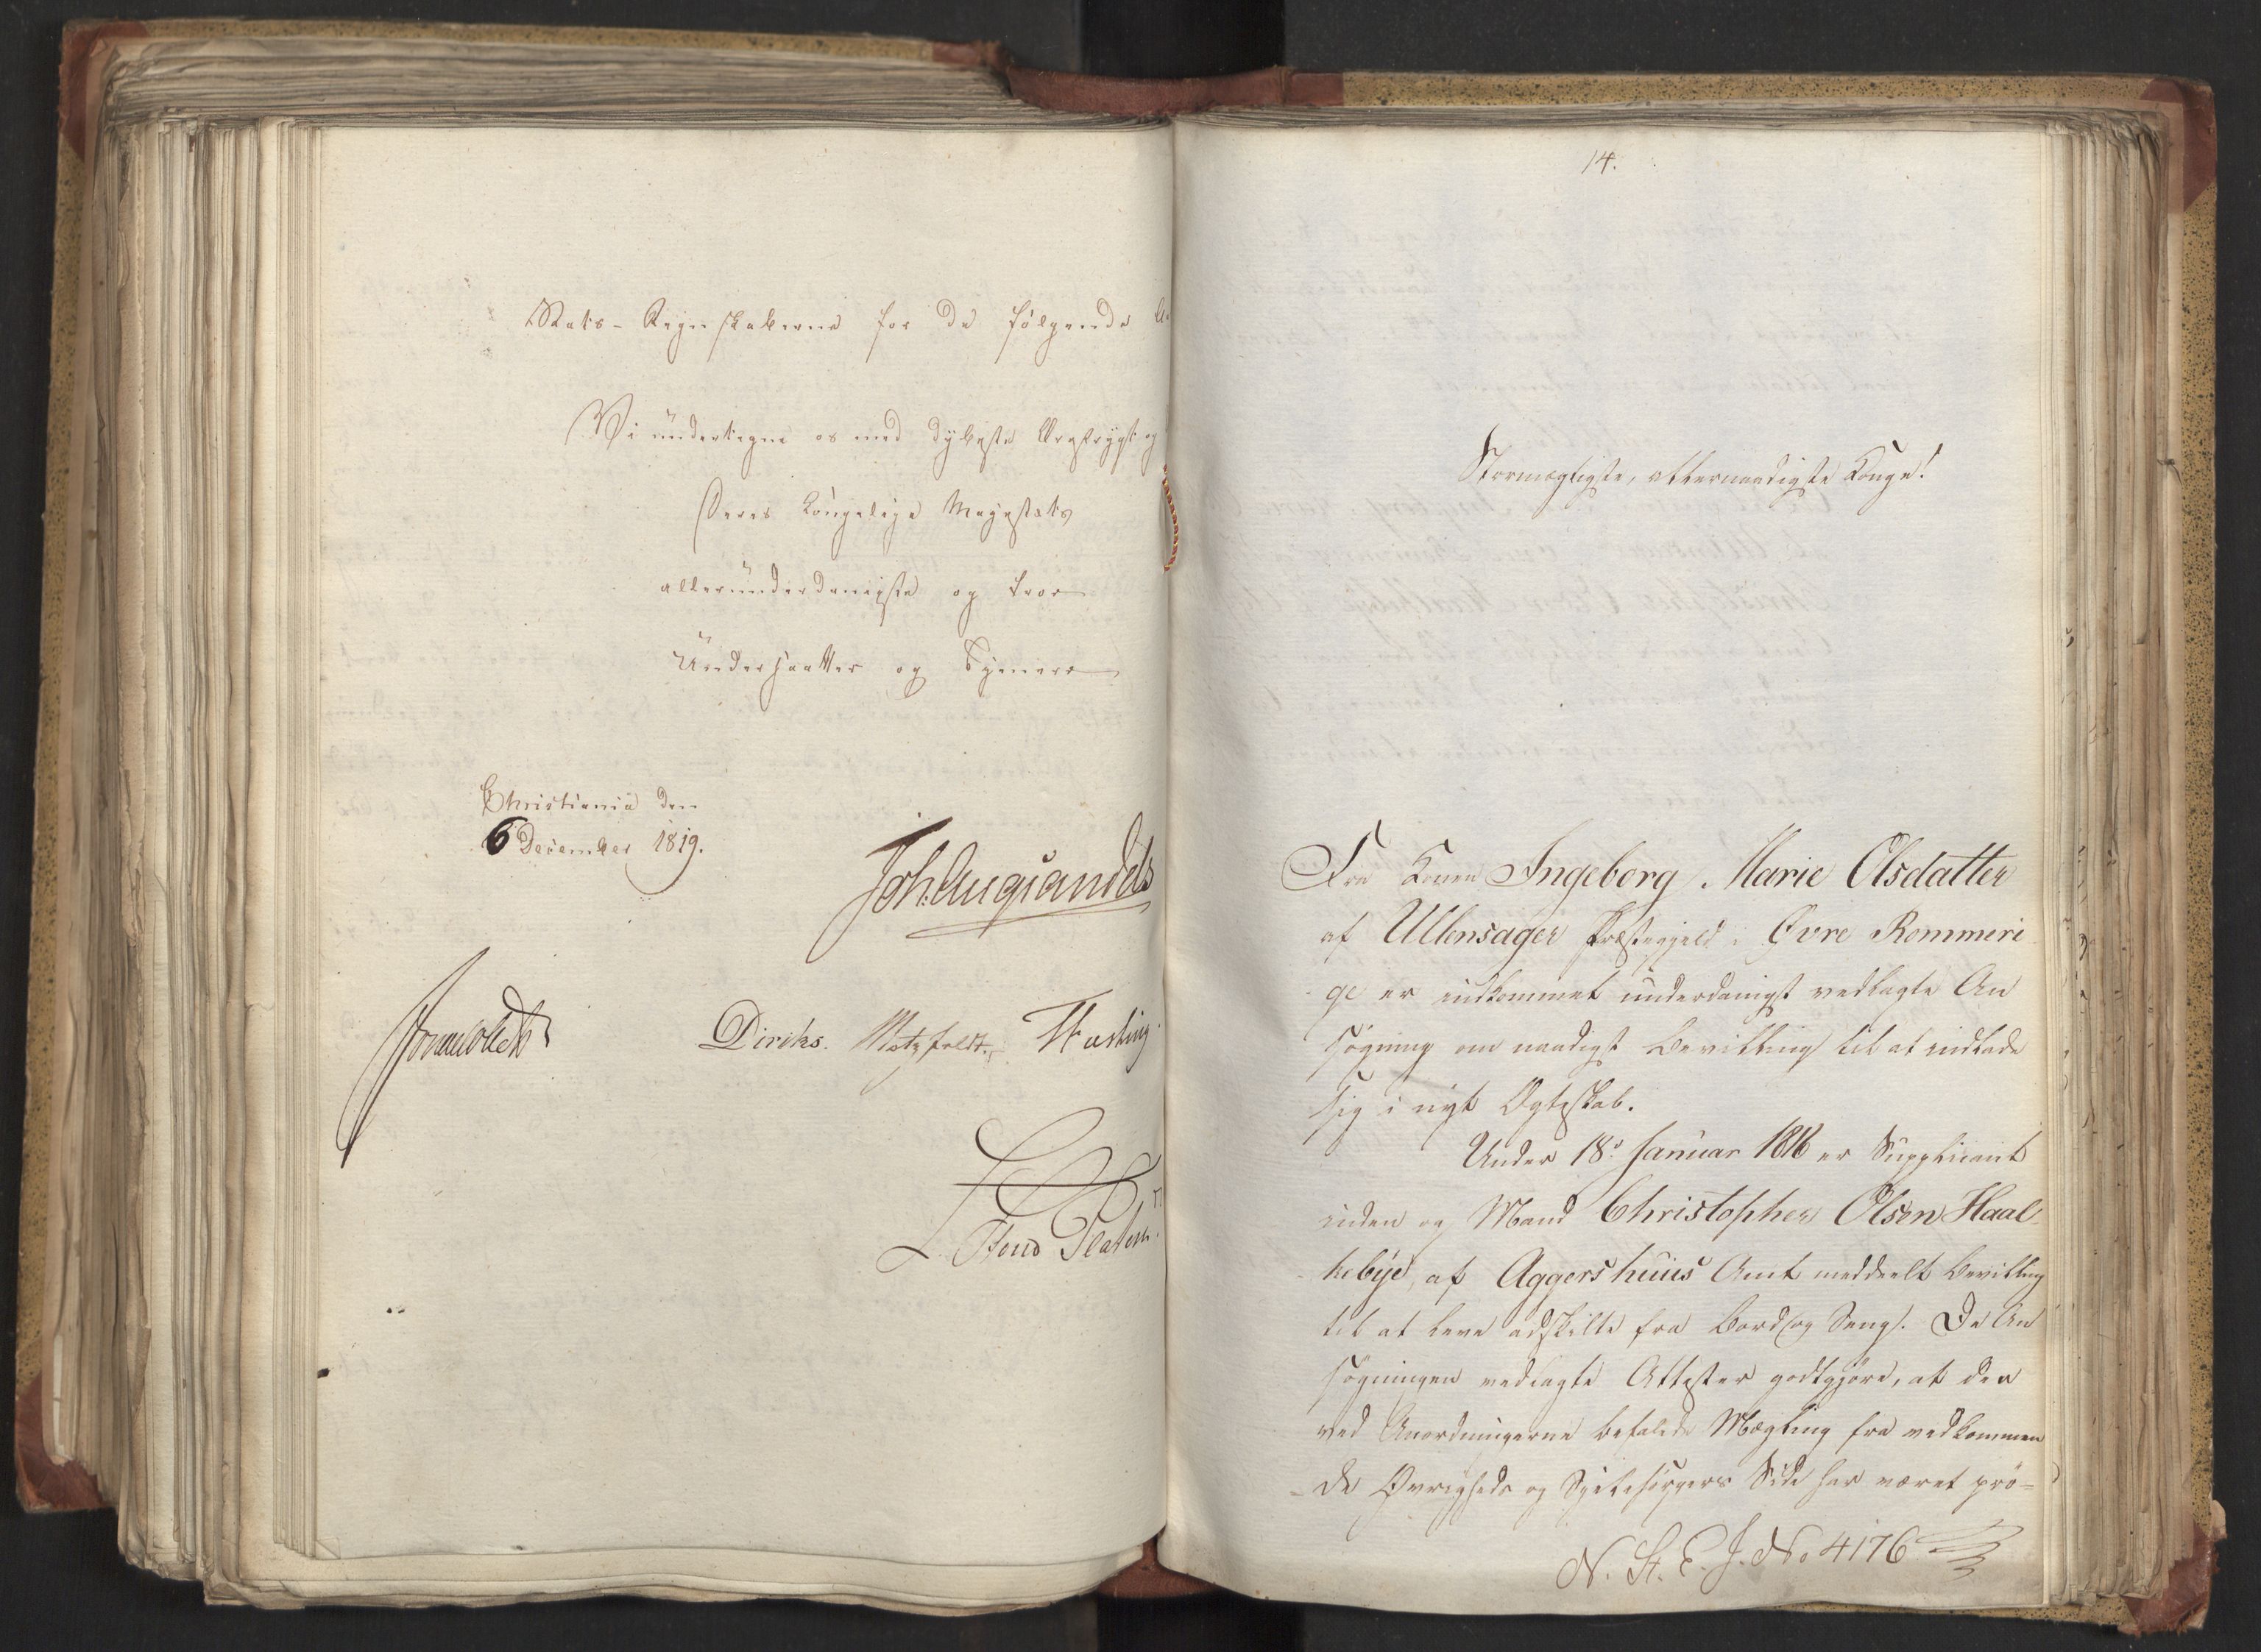 Stats-Regnskaberne for de følgende
Vi undertegne os med dybeste Ærefrygt og
Deres Kongelige Majestæts
allerunderdanigste og troe
Undersaatter og Tjenere
Christiania den
6 December 1819.
Joh. Aug. Sandels
Sommerhielm
Diriks. Motzfeldt. Fasting
14.
Stormægtigste, allernaadigste Konge!
Fra Konen Ingeborg Marie Olsdatter
af Ullensager Præstegjeld i Øvre Rommeri
ge er indkommet underdanigst vedlagte An
søgning om naadigst Bevilling til at indlade
sig i nyt Ægteskab.
Under 18d Januar 1816 er Supplicant
inden og Mand Christopher Olsen Haal-
kebye, af Aggershuus Amt meddeelt Bevilling
til at leve adskilte fra Bord og Seng. De An
søgningen vedlagte Attester godtgjøre, at den
ved Anordningerne befalede Mægling fra vedkommen
-de Øvrigheds og Sjelesørgers Side har været prø-
N. St. E. J. No 4176